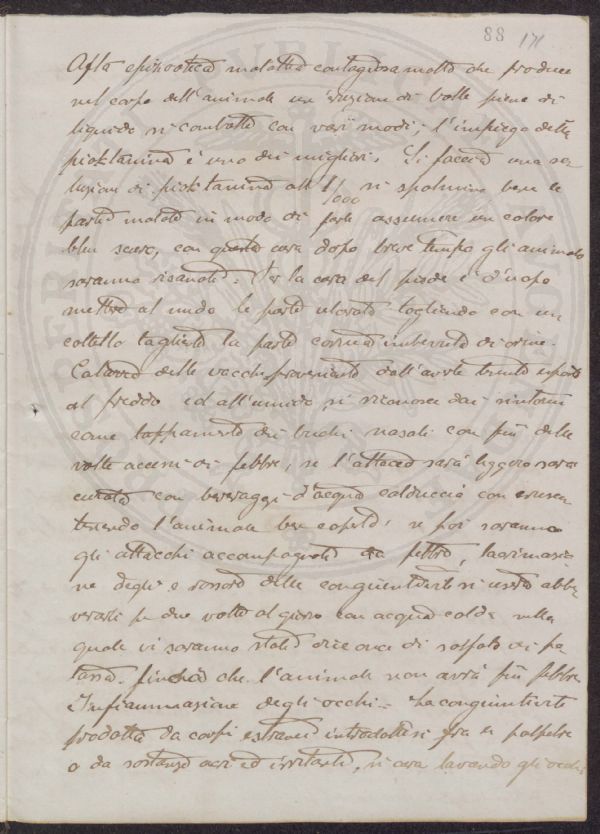 88 171
Afta epizootica malattia contagiosa molto che produce
nel corpo dell'animale un'eruzione di bolle piene di
liquido si combatte con varii modi; l'impiego della
pioktanina è uno dei migliori. Si faccia una so
luzione di pioktanina all' 1/1000 si spalmino bene le
parti malate in modo di farle assumere un colore
bleu scuro, con questa cura dopo breve tempo gli animali
saranno risanati. Per la cura del piede è d'uopo
mettere al nudo le parti ulcerate togliendo con un
coltello tagliente la parte cornea imbevuta di orine.
Catarro delle vacche proveniente dall'averle tenute esposte
al freddo ed all'umido, si riconosce dai sintomi
come tappamento dei buchi nasali con più delle
volte accessi di febbre, se l'attacco sarà leggero sara
curata con beveraggi d'acqua calduccia con crusca
tenendo l'animale ben coperto, se poi saranno
gli attacchi accompagnati da febbre, lacrimazio
ne degli e rossore delle congiuntive si usera abbe
verarli per due volte al giorno con acqua calda nella
quale vi saranno state once di solfato di po
tassa. finchè che l'animale non avrà più febbre
Infiammazione degli occhi = La congiuntivite
prodotta da corpi estranei introdottisi fra le palpebre
o da sostanze acri ed irritanti, si cura lavando gli occhi
PROSPERITATI PUBLICAE